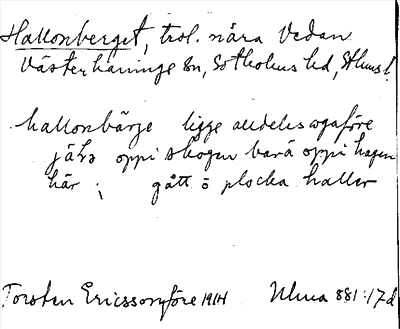 Hallonberget, trol. nära Vedan
Västerhaninge sn, Sotholms hd, Sthms l.
hallonbärje ligge alldeles ogaföre
jäLs oppi skogen barä oppi hagen
här ; gått ö plocka hallor
Torsten Ericsson, före 1914 Ulma 881:17 d